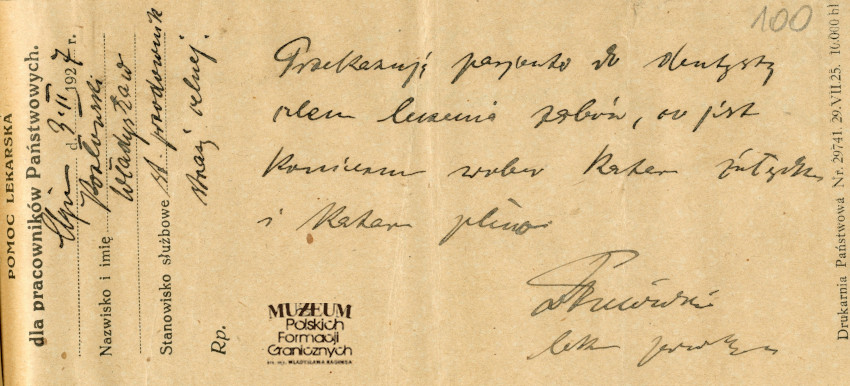 POMOC LEKARSKA
dla pracowników Państwowych.
d. 9.II 1927 r.
Nazwisko i imię Kozłowski
Władysław
Stanowisko służbowe st. przodownik
straży celnej.
Rp.
100
Przekazuję pacjenta do dentysty
celem leczenia zębów, co jest
konieczne wobec kataru żołądka
i kataru płuc
lek.
MUZEUM
Polskich
Formacji
Granicznych
Drukarnia Państwowa Nr. 29741. 29.VII.25. 10.000 bl